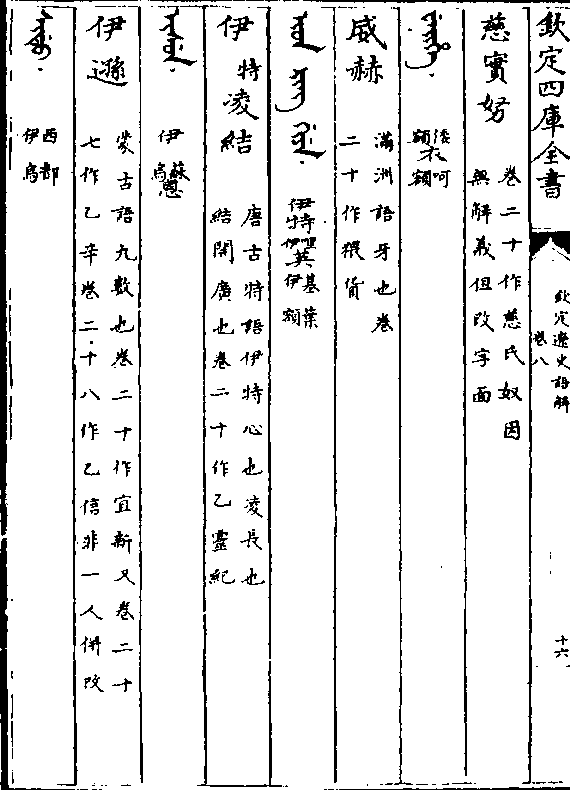 欽定四庫全書
欽定遼史語解
卷八
十六
慈實努
卷二十作慈氏奴因
無解義但改字面
ᠸᡝᡳᡥᡝ
倭額衣呵額
威赫
滿洲語牙也卷
二十作猥貨
ᡳᡨ ᠯᡳᠩ ᡤᡳᠶᡝ
伊特哩伊英基伊葉額
伊特凌結
唐古特語伊特心也凌長也
結開廣也卷二十作乙靈紀
ᡳᠰᡠᠨ
伊蘇烏恩
伊遜
蒙古語九數也卷二十作宜新又卷二十
七作乙辛卷二十八作乙信非一人併改
西伊都烏